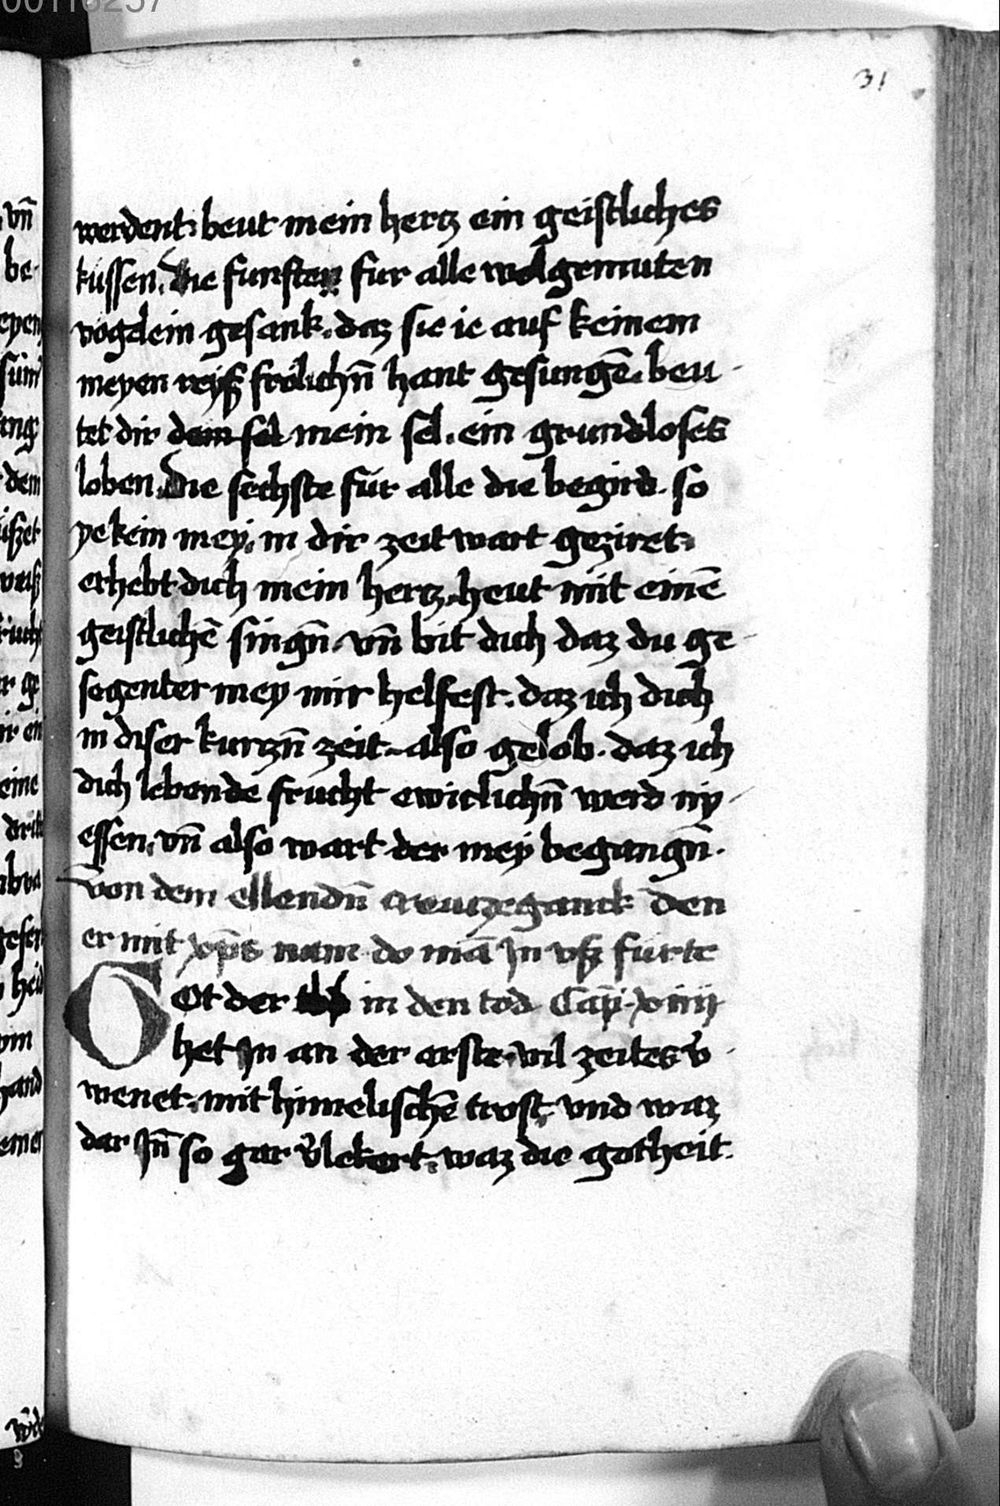 00116257
31
werdent. beut mein hertz ein geistliches
küssen. Die funften fur alle wolgemuten
vogelein gesank. daz sie ie auf keinem
meyen reyß frölichn̄ hant gesungē. beu
tet dir dein sel mein sel. ein grundloses
loben. Die sechste für alle die begird. so
ye kein mey. in dir zeit wart geziret.
erhebt dich mein hertz. heut mit einē
geistlichē singn̄. vn̄ bit dich daz du ge
segenter mey mir helfest. daz ich dich
in diser kurczn̄ zeit also gelob. daz ich
dich lebende frucht ewiclichn̄ werd ny
essen. vn̄ also wart der mey begangn̄.
von dem ellendn̄ creutzeganck den
er mit xp̄s nam do mā Jn vß fürte
GOt der in den tod Cap̄. xiiij
het Jn an der erste. vil zeites v̄
wenet. mit himelischē trost. vnd waz
dar Jn̄ so gar v̄lekert. waz die gotheit.